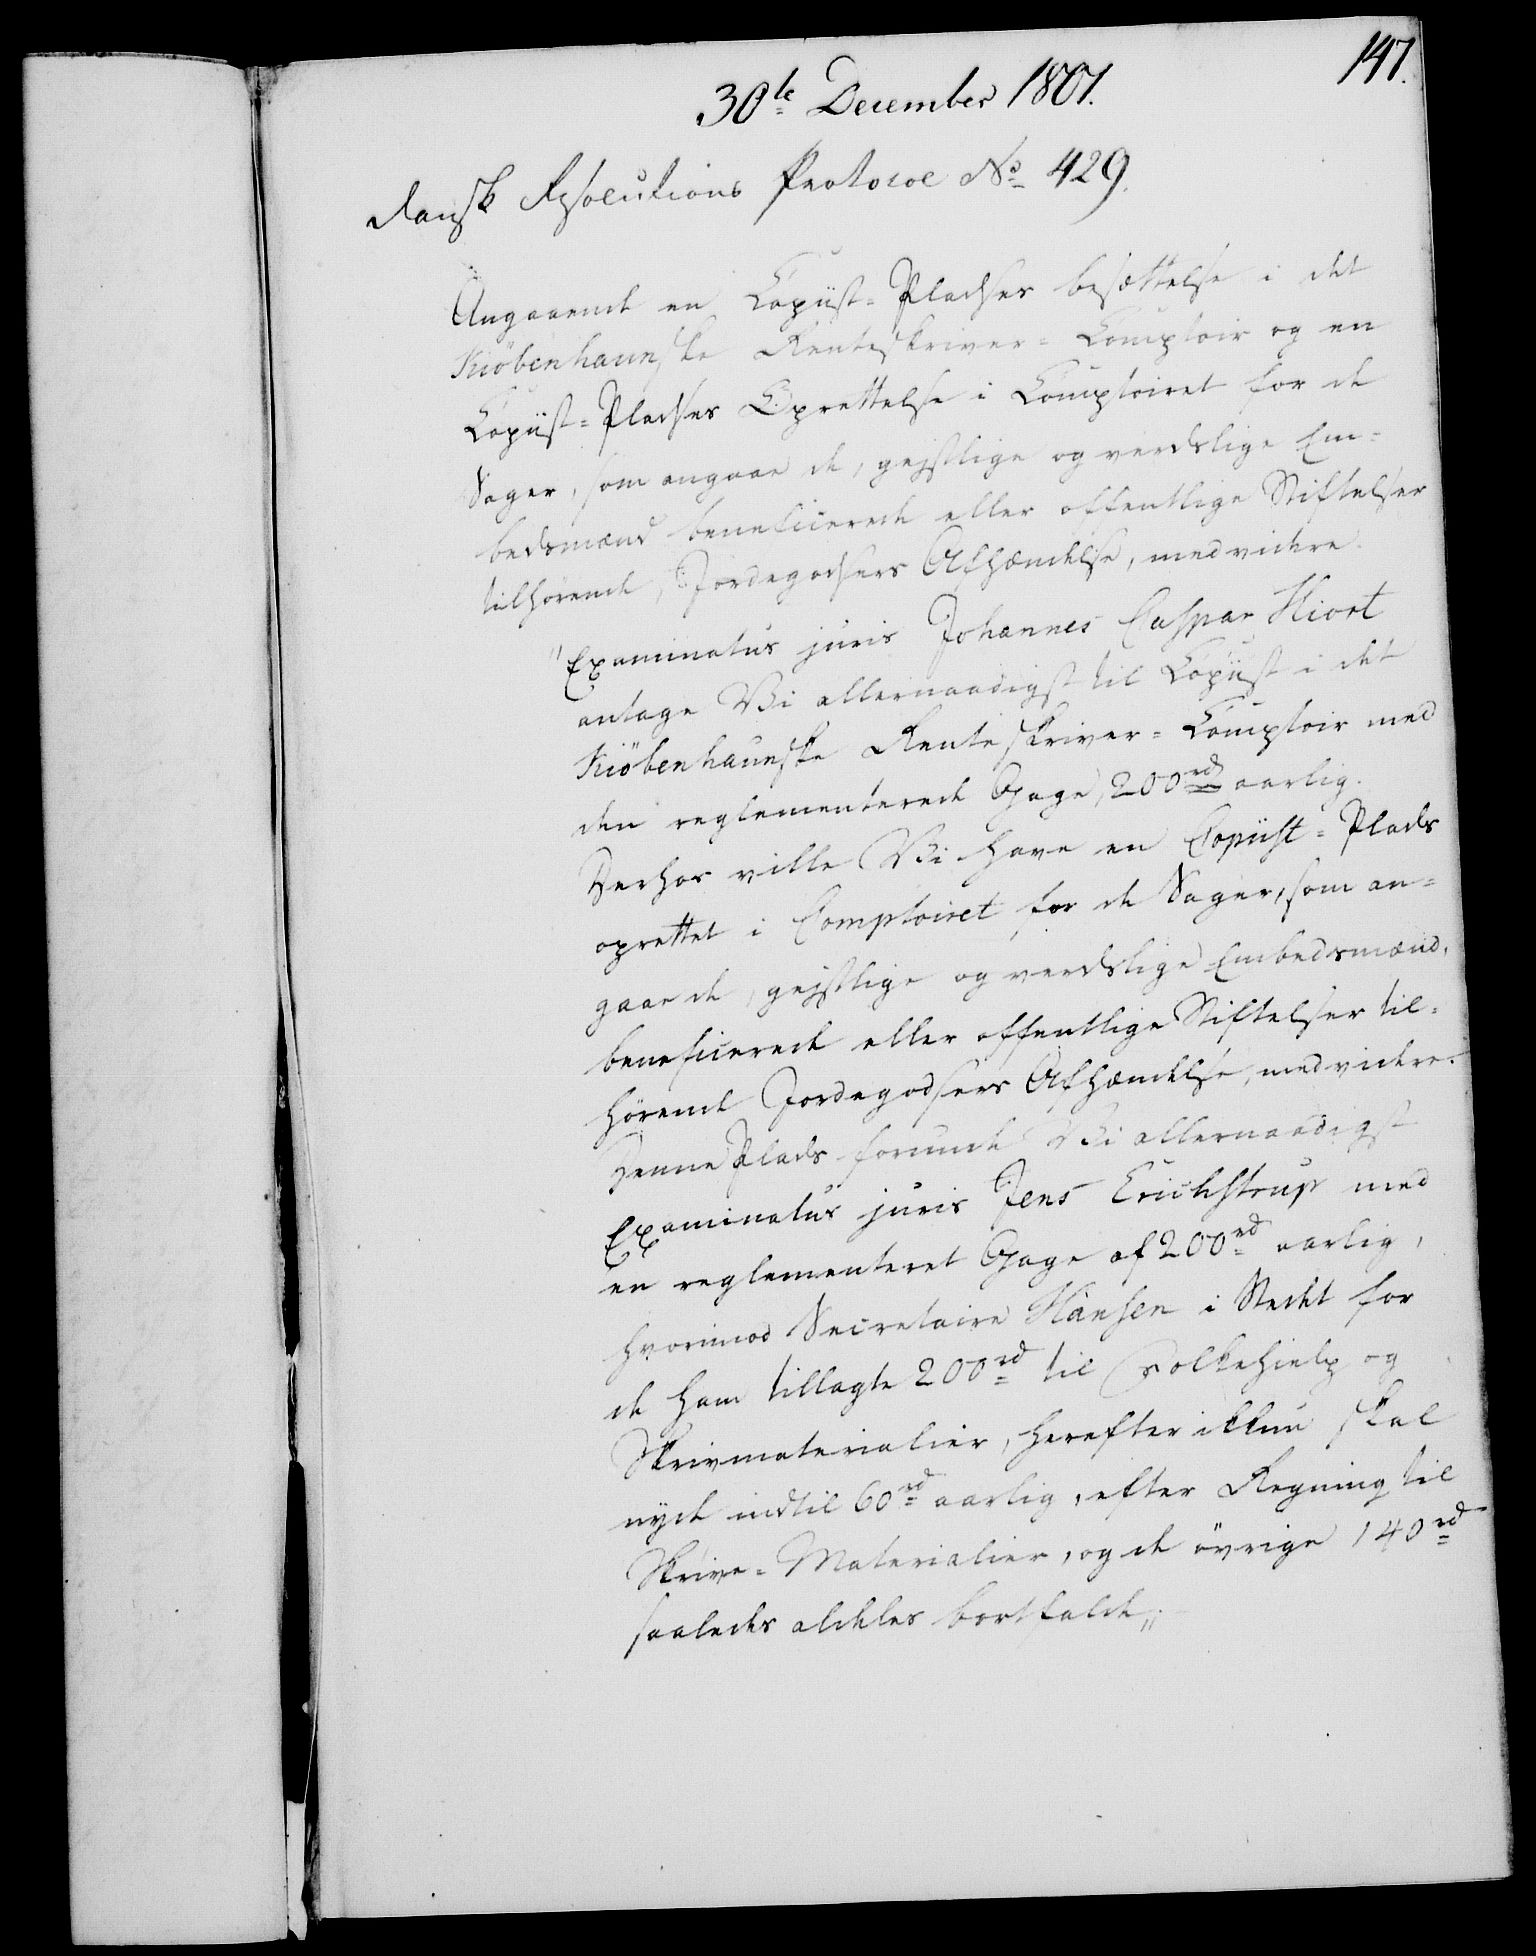 147.
30te December 1801.
Dansk Resolutions Protocol No 429.
Angaaende en Copiist-Pladses besættelse i det
Kiöbenhavnske Renteskriver-Comptoir og en
Copiist-Pladses Oprettelse i Comptoiret for de
Sager, som angaae de, geistlige og verdslige Em-
bedsmænd beneficerede eller offentlige Stiftelser
tilhørende, Jordegodsers Afhændelse, med videre.
"Examinatus juris Johannes Caspar Hiort
antage Vi allernaadigst til Copiist i det
Kiöbenhavnske Renteskriver-Comptoir med
den reglementerede Gage, 200rd aarlig.
Derhos ville Vi have en Copiist-Plads
oprettet i Comptoiret for de Sager, som an-
gaae de, geistlige og verdslige Embedsmænd,
beneficerede eller offentlige Stiftelser til-
hørende Jordegodsers Afhændelse, med videre.
Denne Plads forunde Vi allernaadigst
Examinatus juris Jens Erichstrup med
en reglementeret Gage af 200rd aarlig,
hvorimod Secretaire Hansen i Stedet for
de ham tillagte 200rd til Folkehielp og
Skrivmaterialier, herefter ikkun skal
nyde indtil 60rd aarlig, efter Regning til
Skrive-Materialier, og de övrige 140rd
saaledes aldeles bortfalde,,.